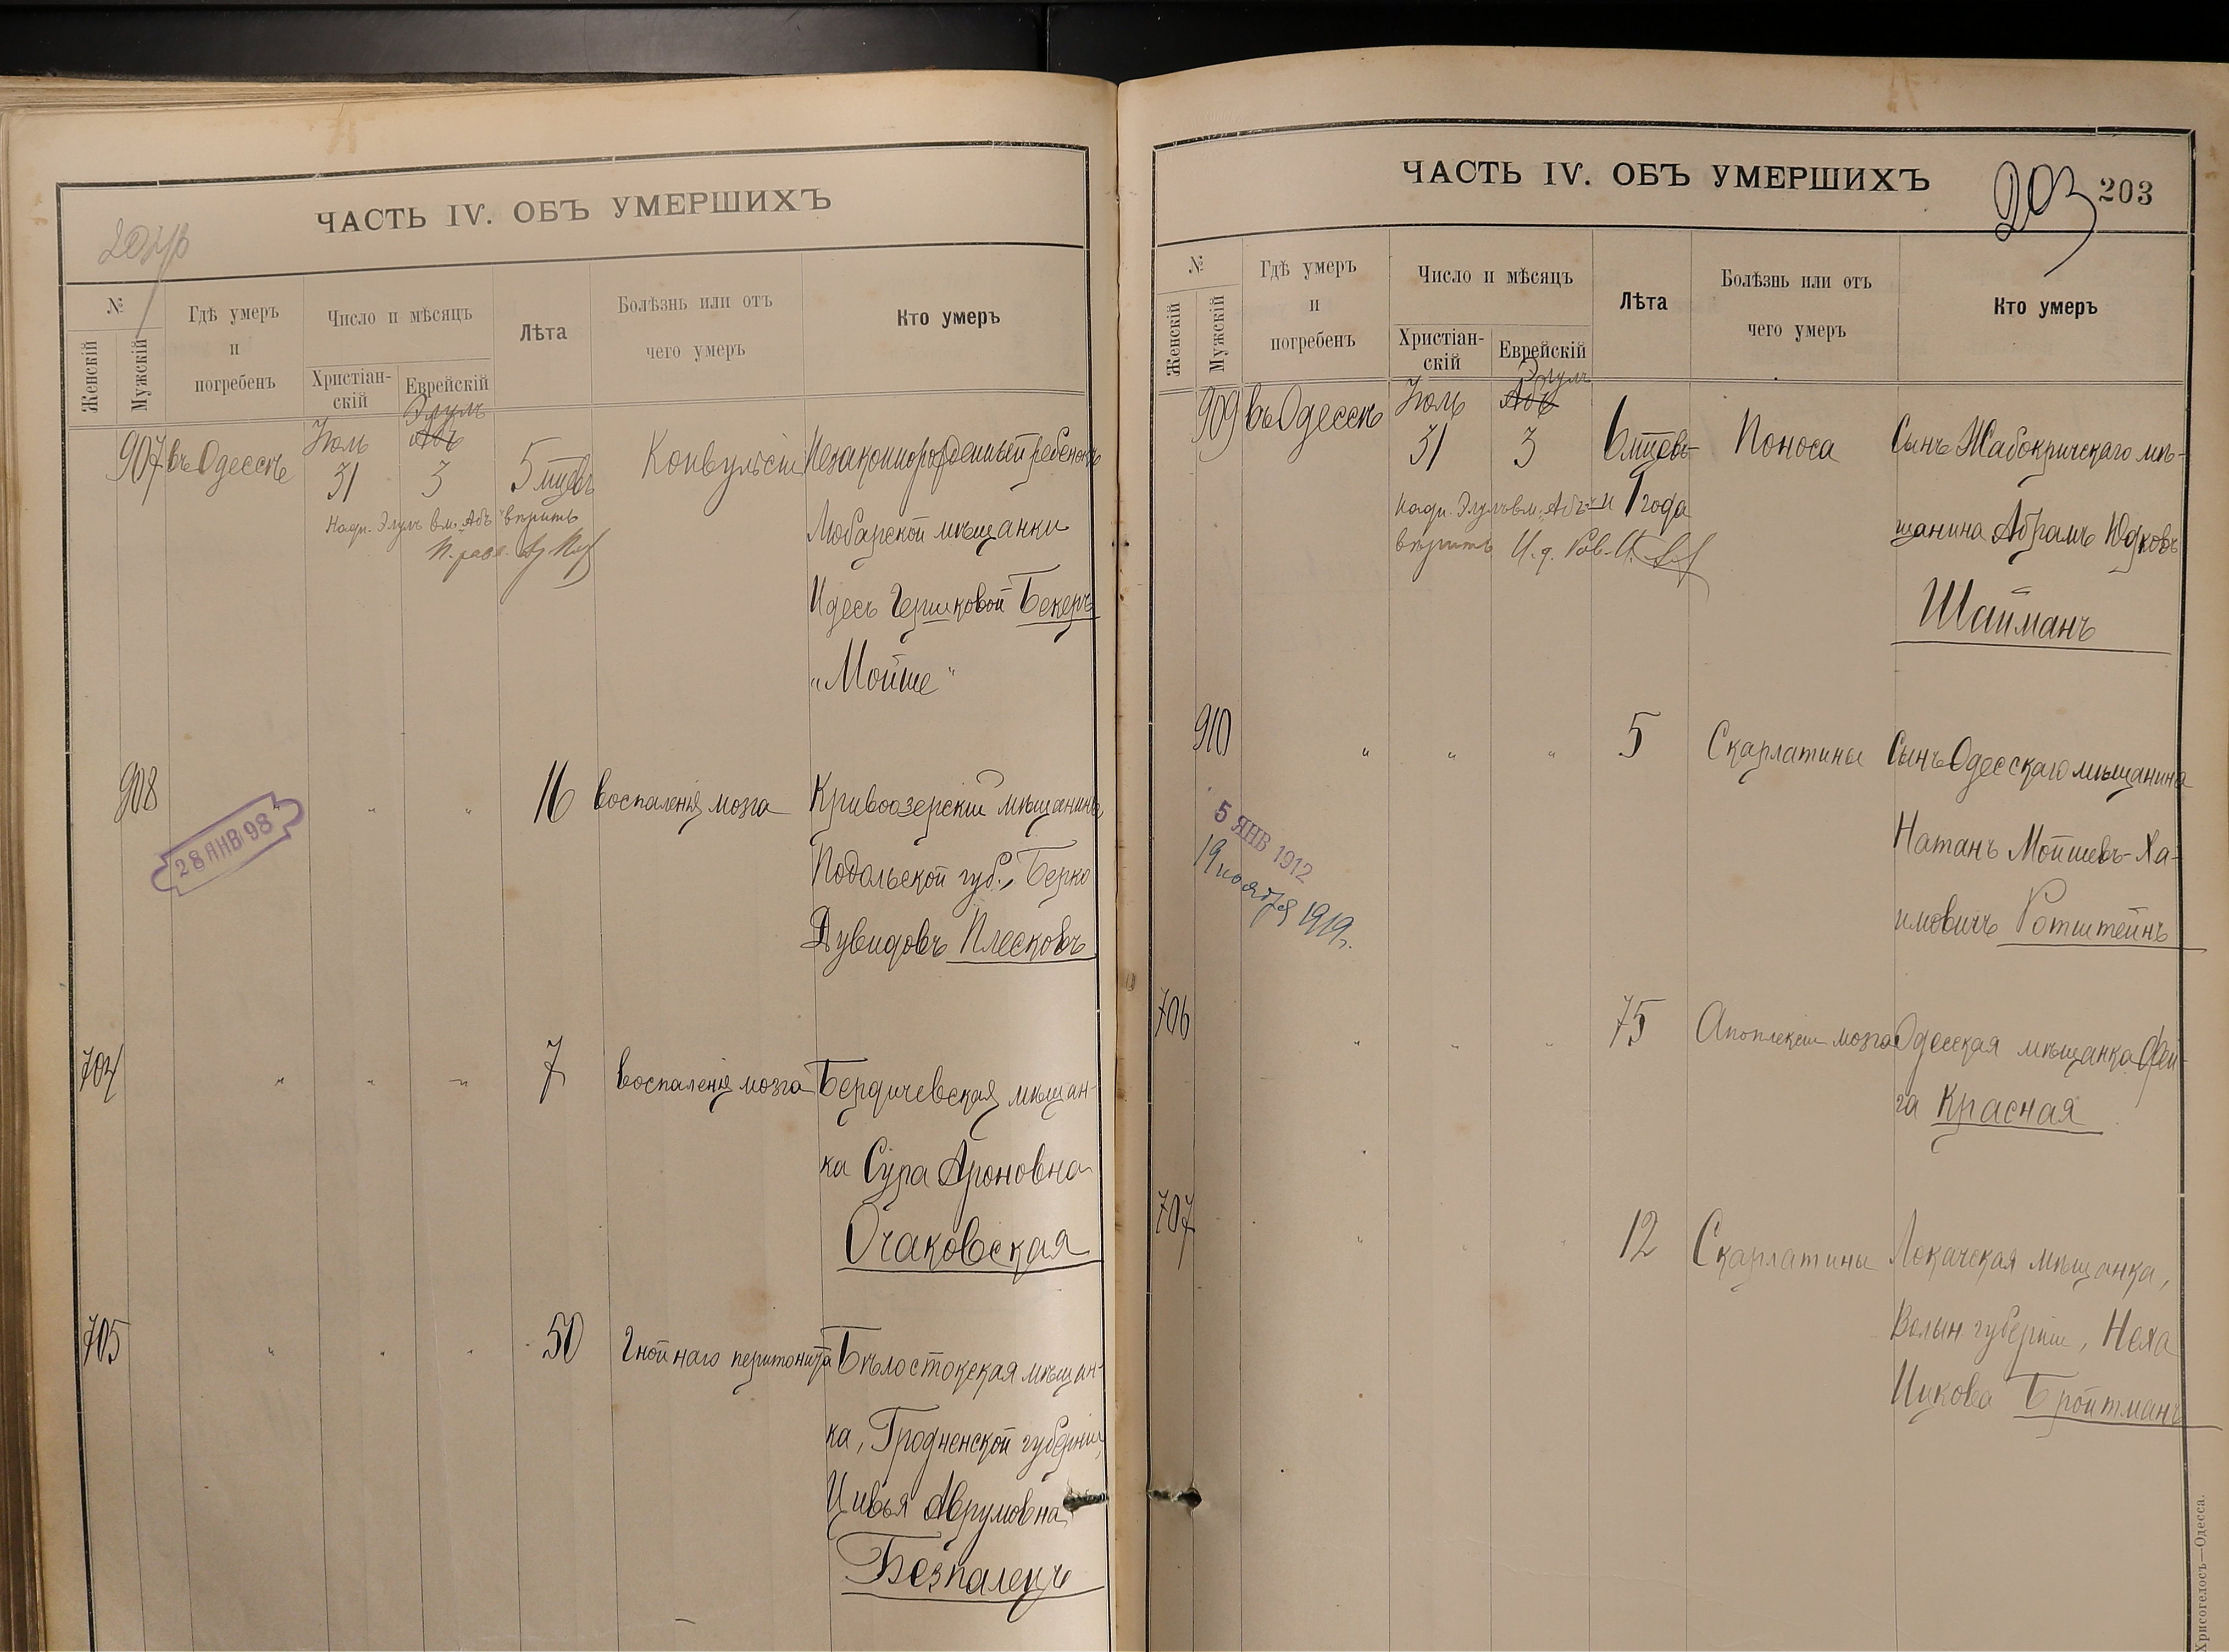 ЧАСТЬ IV. ОБЪ УМЕРШИХЪ
№
Женскій
Мужскій
Гдѣ умеръ
и
погребенъ
Число и мѣсяцъ
Христіан-
скій
Еврейскій
Лѣта
Болѣзнь или отъ
чего умеръ
Кто умеръ
Элулъ
Іюль Абъ
907 въ Одессѣ 31 3 5 мцевъ Конвульсіи Незаконнорожденный ребенокъ
Надп. Элулъ вм. Абъ вѣрить
мѣщанки
Идесъ Гершковой Бекеръ
„Мойше"
908 " " 16 воспаленія мозга Кривоозерскій мѣщанинъ,
28 ЯНВ 98
Подольской губ., Берко
Дувидовъ Плесковъ
704 " " " 7 воспаленія мозга Бердичевская мѣщан-
ка Сура Ароновна
Очаковская
705 " " " 50 Гнойнаго перитонита Бѣлостокская мѣщан-
ка, Гродненской губерніи,
Цивья Аврумовна
Безпалецъ
ЧАСТЬ IV. ОБЪ УМЕРШИХЪ
203 203
№
Женскій
Мужскій
Гдѣ умеръ
и
погребенъ
Число и мѣсяцъ
Христіан-
скій
Еврейскій
Лѣта
Болѣзнь или отъ
чего умеръ
Кто умеръ
Элулъ
Іюль Абъ
909 въ Одессѣ 31 3 6 мцевъ Поноса Сынъ Жабокричскаго мѣ-
Надп. Элулъ вм. Абъ и 1 года
вѣрить И. д. Рав.
щанина Абрамъ Юдковъ
Шайманъ
910 " " " 5 Скарлатины Сынъ Одесскаго мѣщанина
5 ЯНВ 1912
19 ноября 1919г.
Натанъ Мойшевъ-Ха-
имовичъ Ротштейнъ
706 " " " 75 Апоплексіи мозга Одесская мѣщанка Фей-
га Красная
707 " " " 12 Скарлатины Локачская мѣщанка,
Волын. губерніи, Неха
Ицкова Бройтманъ
Хрисогелосъ—Одесса.